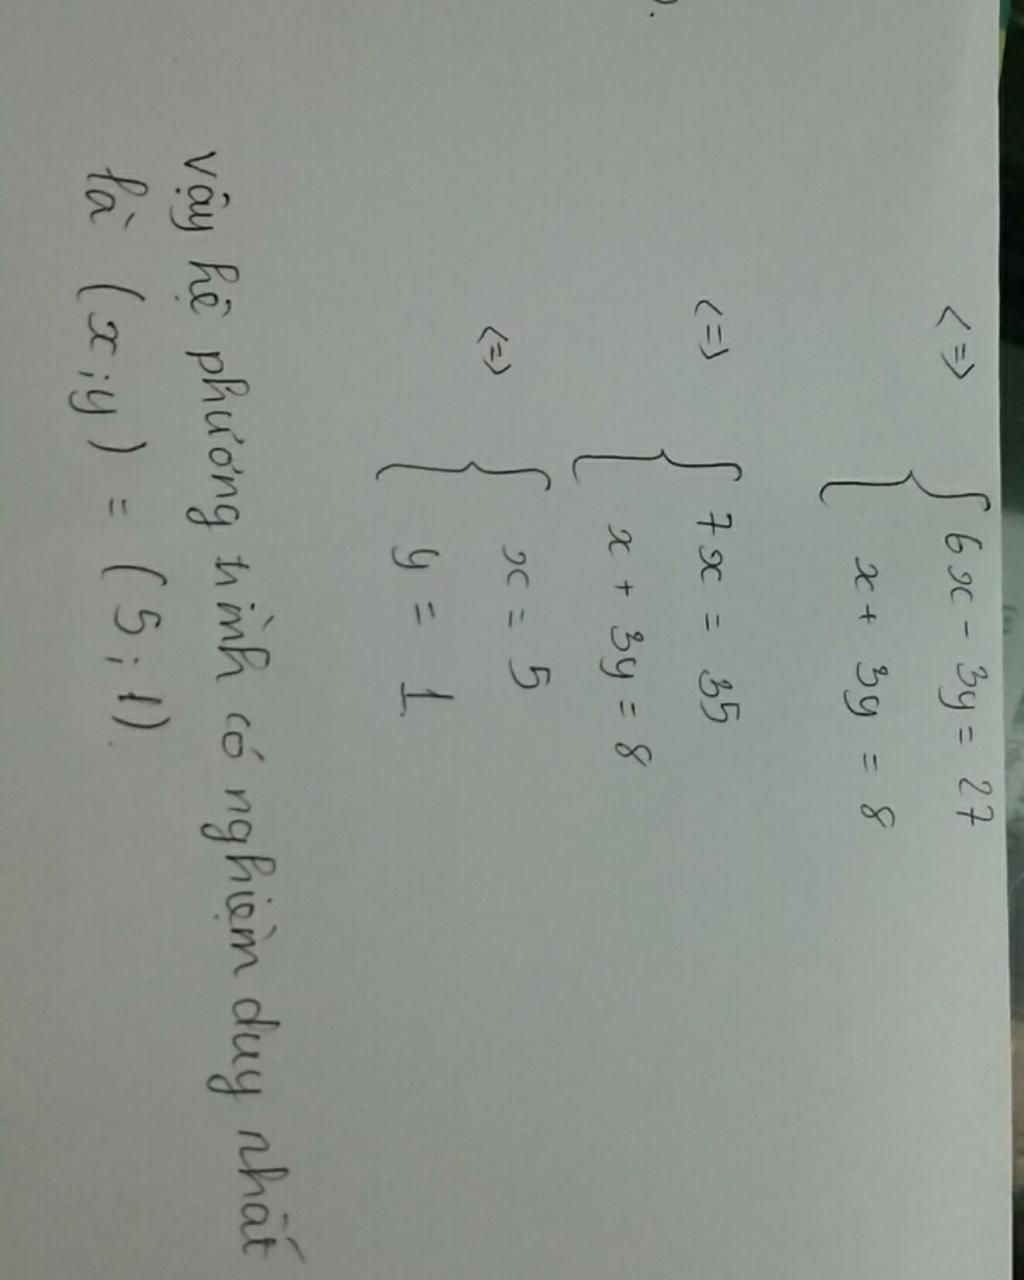 <=> { 6x - 3y = 27
x + 3y = 8
<=> { 7x = 35
x + 3y = 8
<=> { x = 5
y = 1
Vậy hệ phương trình có nghiệm duy nhất
là (x;y) = (5;1).